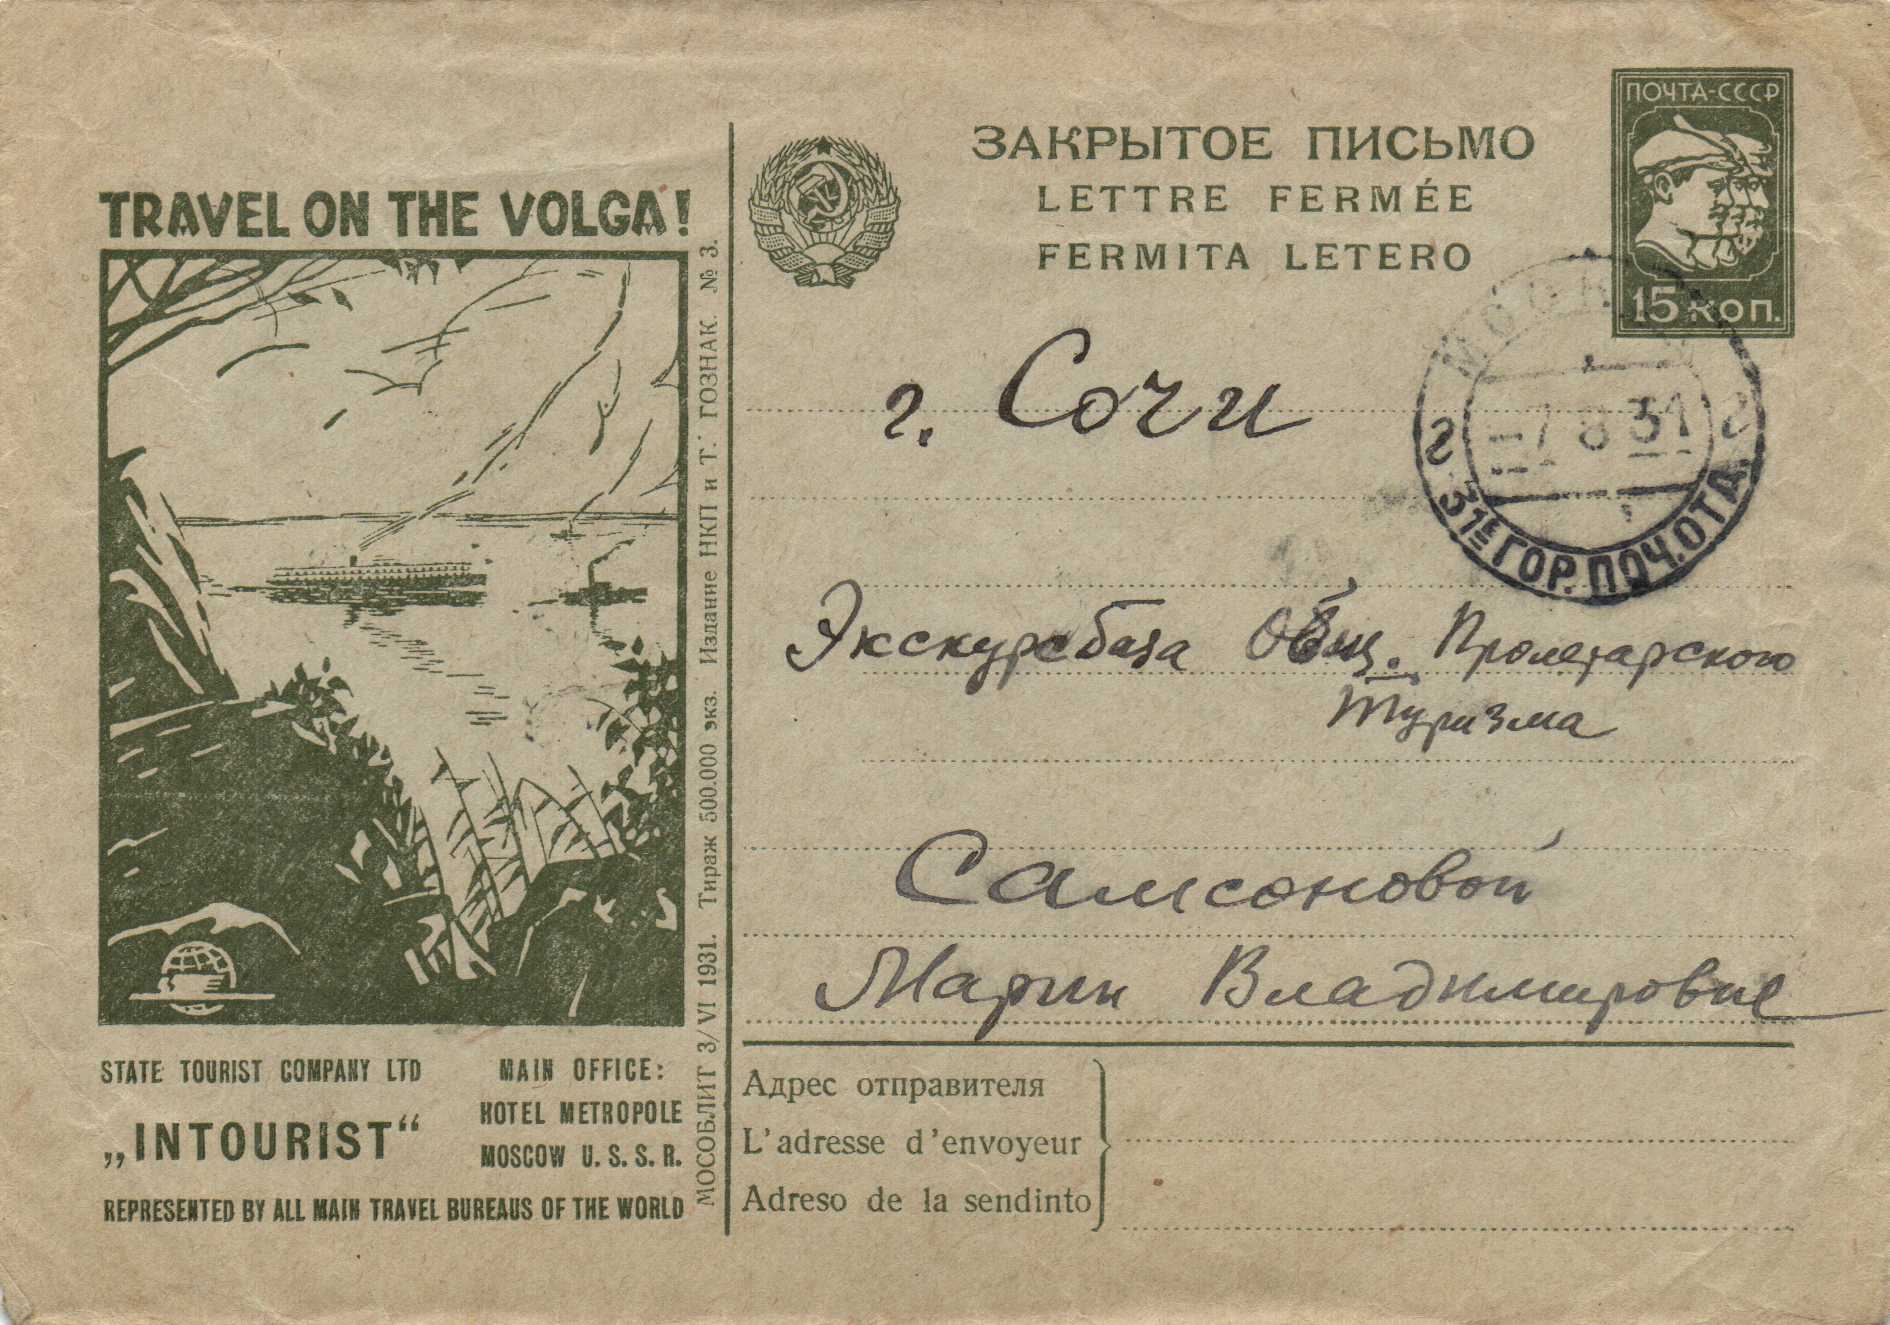 TRAVEL ON THE VOLGA!
STATE TOURIST COMPANY LTD
„INTOURIST“
MAIN OFFICE:
HOTEL METROPOLE
MOSCOW U.S.S.R.
REPRESENTED BY ALL MAIN TRAVEL BUREAUS OF THE WORLD
МОСОБЛИТ 3/VI 1931. Тираж 500.000 экз. Издание НКП и Т. ГОЗНАК. № 3.
ЗАКРЫТОЕ ПИСЬМО
LETTRE FERMÉE
FERMITA LETERO
ПОЧТА-СССР
15 КОП.
МОСКВА
-7 8 31
2 2
31Е ГОР. ПОЧ. ОТД.
г. Сочи
Экскурсбаза Общ. Пролетарского
Туризма
Самсоновой
Марии Владимировне
Адрес отправителя
L'adresse d'envoyeur
Adreso de la sendinto